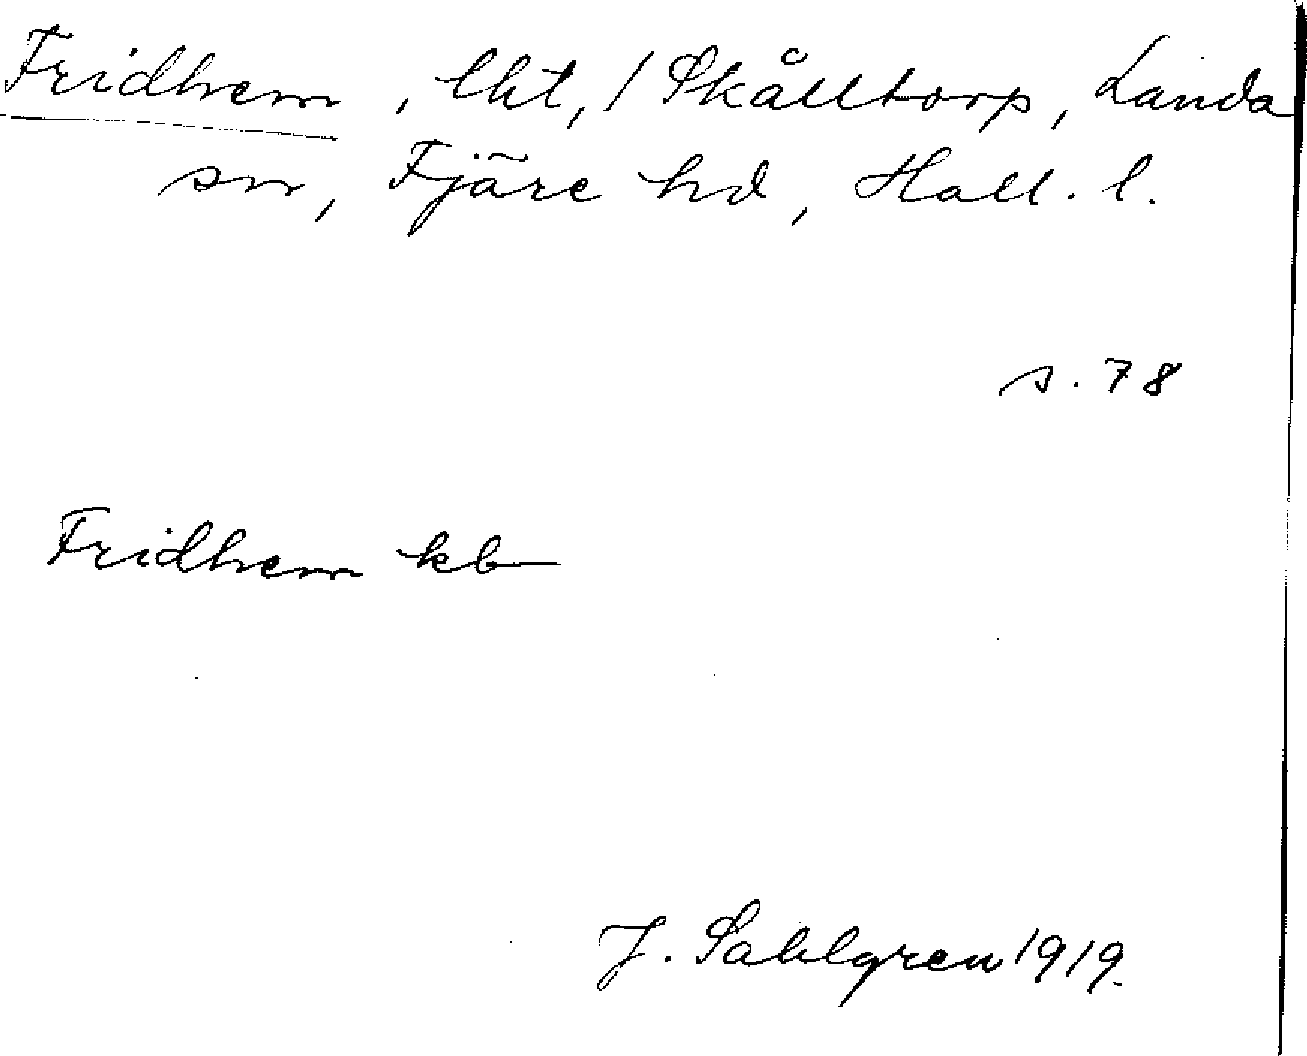 Fridhem, lht, / Skålltorp, Landa
sn, Fjäre hd, Hall. l.
s. 78
Fridhem kb
J. Sahlgren 1919.